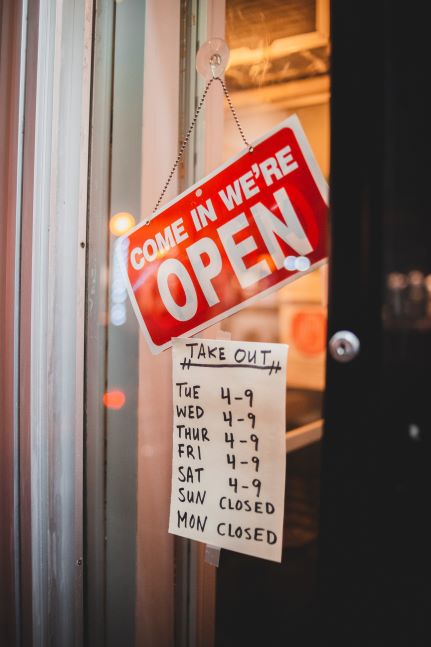 COME IN WE'RE
OPEN
"TAKE OUT"
TUE 4-9
WED 4-9
THUR 4-9
FRI 4-9
SAT 4-9
SUN CLOSED
MON CLOSED